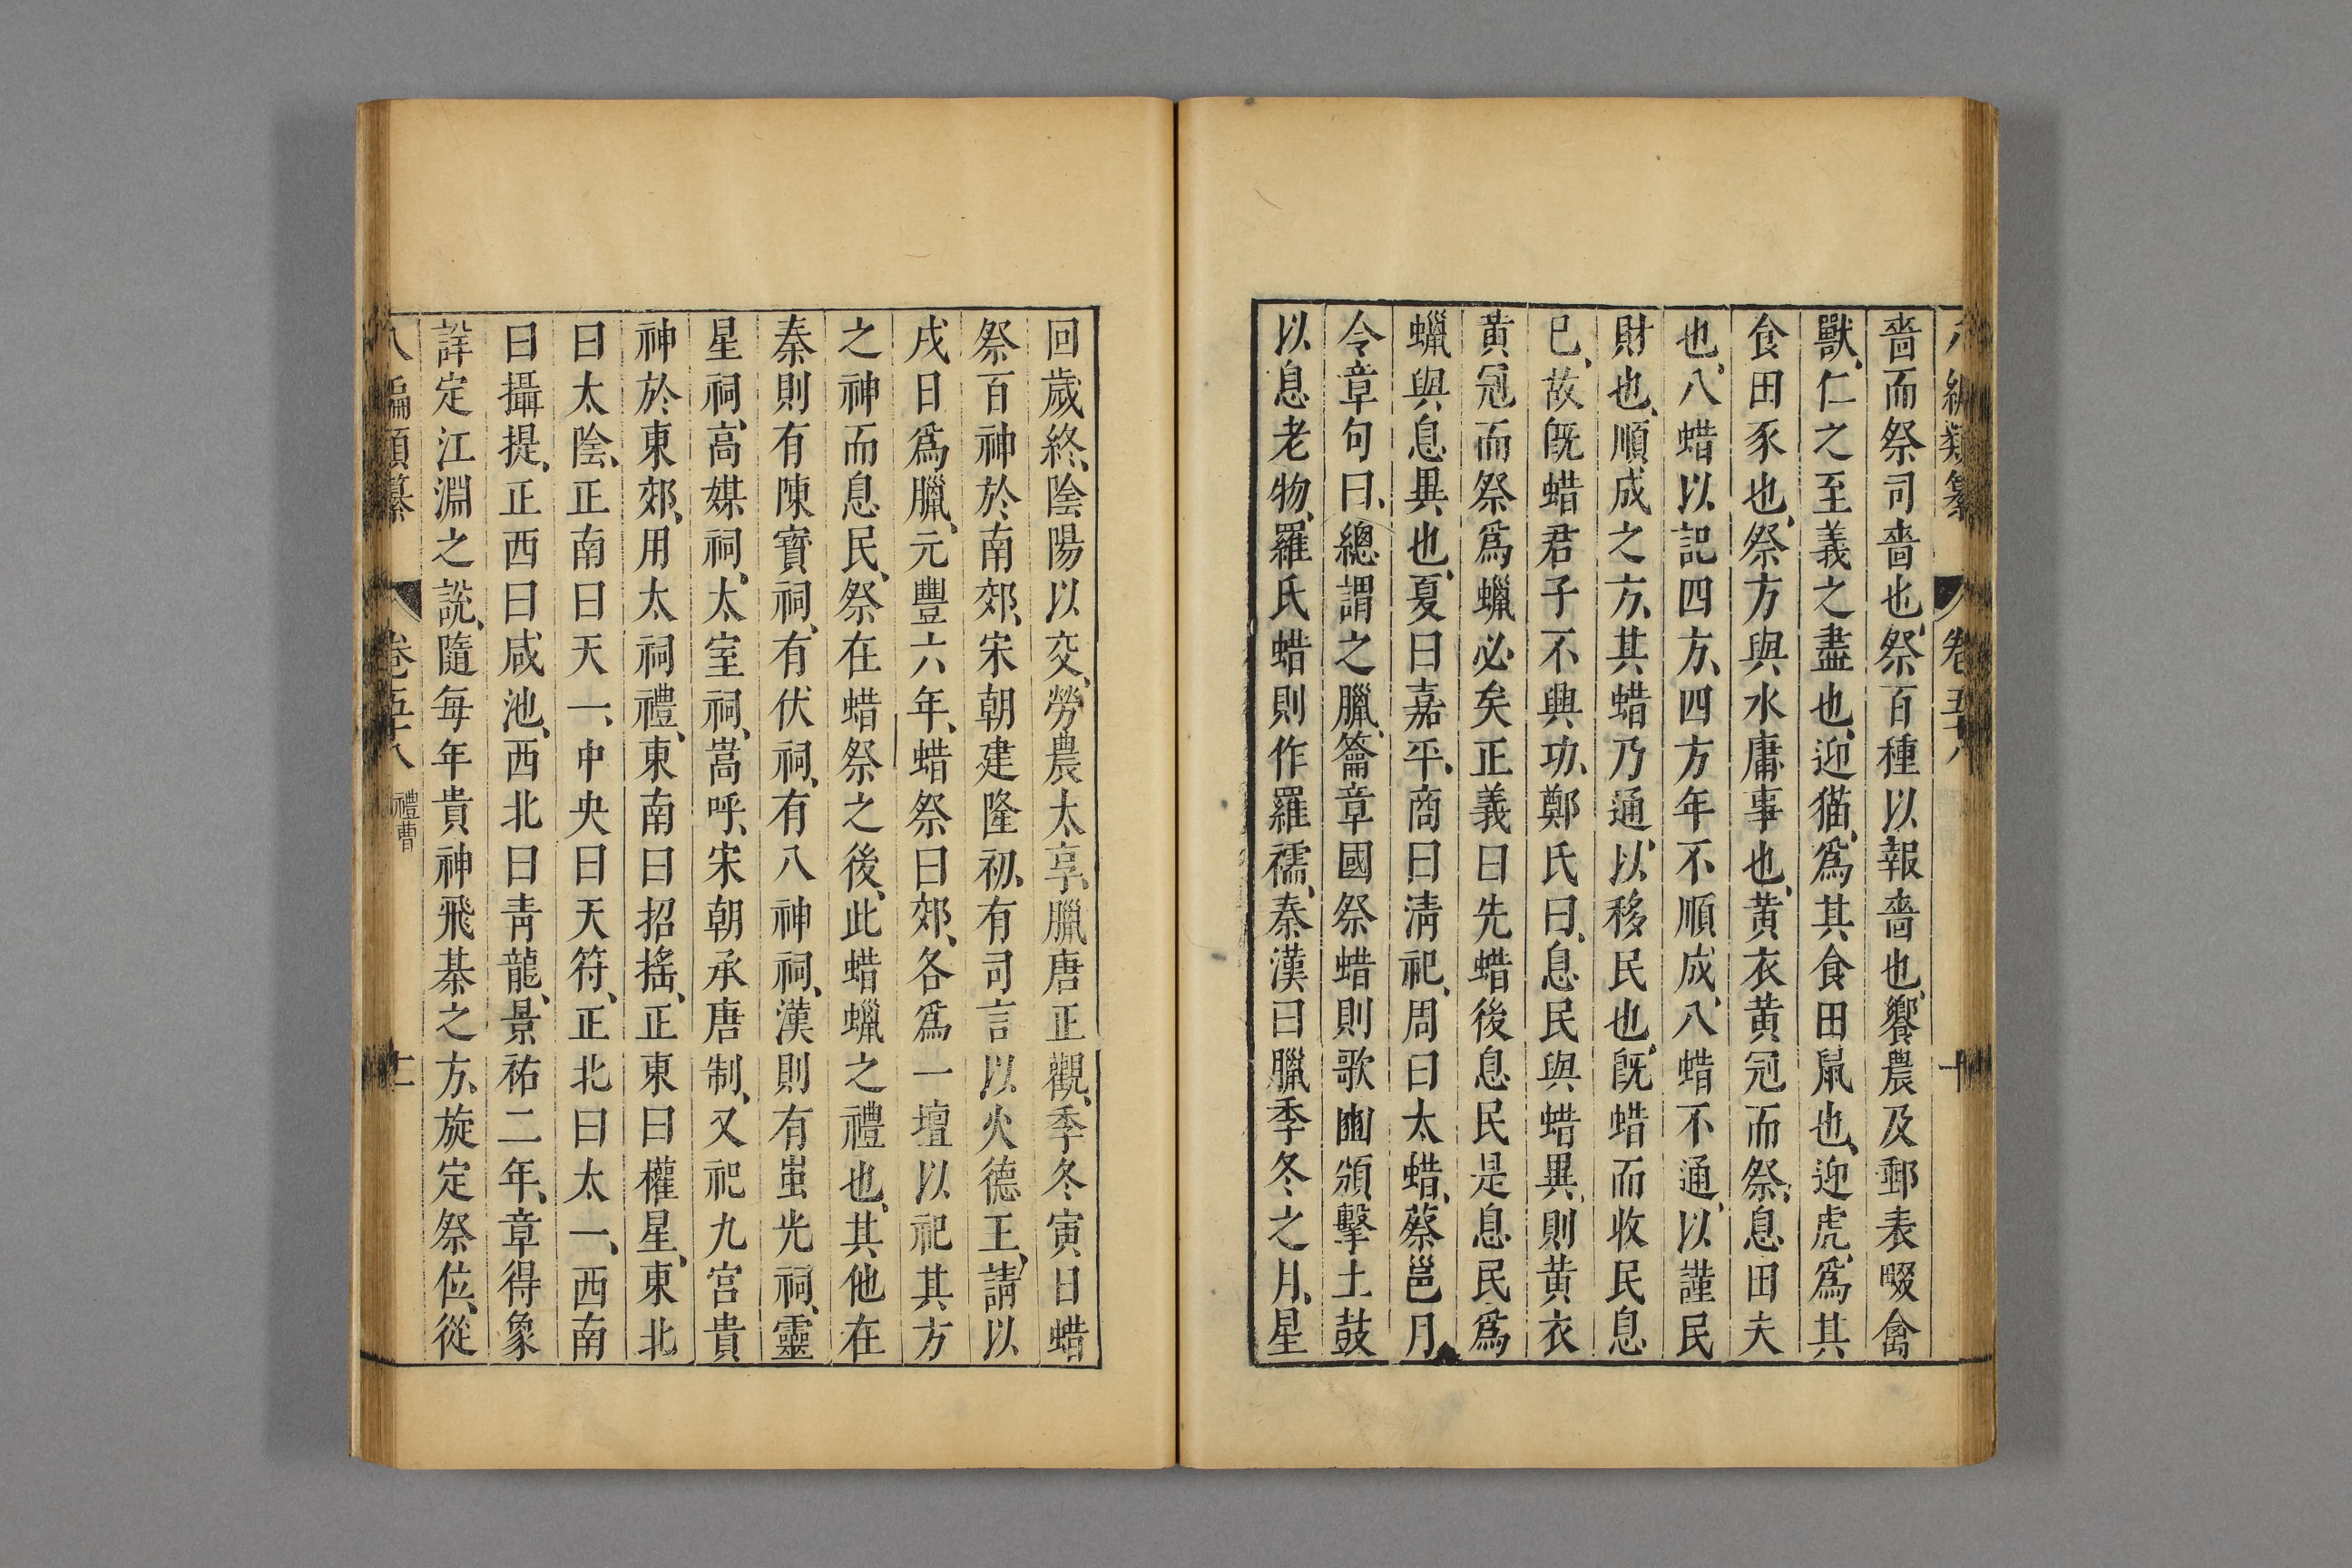 八編類纂 卷五十八 十
嗇而祭司嗇也、祭百種以報嗇也、饗農及郵表畷禽
獸、仁之至義之盡也、迎猫、爲其食田鼠也、迎虎、爲其
食田豕也、祭方與水庸事也、黄衣黄冠而祭、息田夫
也、八蜡以記四方、四方年不順成、八蜡不通、以謹民
財也、順成之方、其蜡乃通、以移民也、旣蜡而收民息
已、故旣蜡君子不興功、鄭氏曰、息民與蜡異、則黄衣
黄冠而祭爲蠟必矣正義曰先蜡後息民是息民爲
蠟與息異也、夏曰嘉平、商曰淸祀、周曰太蜡、蔡邕月
令章句曰、總謂之臘、籥章國祭蜡則歌豳頒擊土鼓
以息老物、羅氏蜡則作羅襦、秦漢曰臘季冬之月、星
回歲終、陰陽以交、勞農太享、臘唐正觀、季冬寅日蜡
祭百神於南郊、宋朝建隆初、有司言以火德王、請以
戌日爲臘、元豐六年、蜡祭曰郊、各爲一壇以祀其方
之神而息民、祭在蜡祭之後、此蜡蠟之禮也、其他在
秦則有陳寶祠、有伏祠、有八神祠、漢則有蚩光祠、靈
星祠、高媒祠、太室祠、嵩呼、宋朝承唐制、又祀九宮貴
神於東郊、用太祠禮、東南曰招搖、正東曰權星、東北
曰太陰、正南曰天一、中央曰天符、正北曰太一、西南
曰攝提、正西曰咸池、西北曰靑龍、景祐二年、章得象
詳定江淵之說、隨每年貴神飛棊之方、旋定祭位、從
八編類纂 卷五十八 禮曹 十一